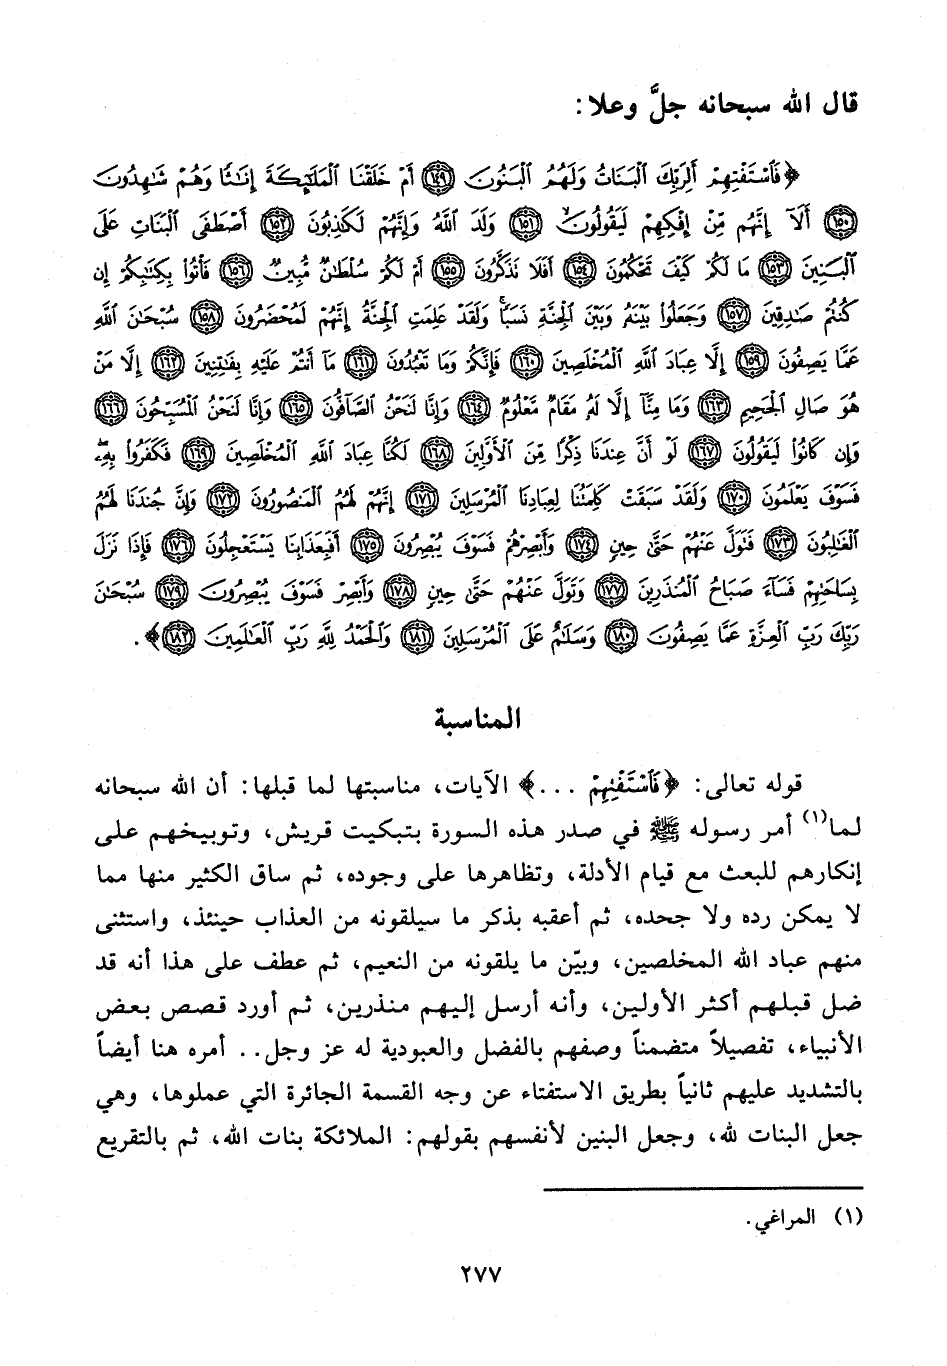 قال الله سبحانه جلَّ وعلا:
﴿فَاسْتَفْتِهِمْ أَلِرَبِّكَ الْبَنَاتُ وَلَهُمُ الْبَنُونَ ﴿١٤٩﴾ أَمْ خَلَقْنَا الْمَلَائِكَةَ إِنَاثًا وَهُمْ شَاهِدُونَ
﴿١٥٠﴾ أَلَا إِنَّهُم مِّنْ إِفْكِهِمْ لَيَقُولُونَ ﴿١٥١﴾ وَلَدَ اللَّهُ وَإِنَّهُمْ لَكَاذِبُونَ ﴿١٥٢﴾ أَصْطَفَى الْبَنَاتِ عَلَى
الْبَنِينَ ﴿١٥٣﴾ مَا لَكُمْ كَيْفَ تَحْكُمُونَ ﴿١٥٤﴾ أَفَلَا تَذَكَّرُونَ ﴿١٥٥﴾ أَمْ لَكُمْ سُلْطَانٌ مُّبِينٌ ﴿١٥٦﴾ فَأْتُوا بِكِتَابِكُمْ إِن
كُنتُمْ صَادِقِينَ ﴿١٥٧﴾ وَجَعَلُوا بَيْنَهُ وَبَيْنَ الْجِنَّةِ نَسَبًا وَلَقَدْ عَلِمَتِ الْجِنَّةُ إِنَّهُمْ لَمُحْضَرُونَ ﴿١٥٨﴾ سُبْحَانَ اللَّهِ
عَمَّا يَصِفُونَ ﴿١٥٩﴾ إِلَّا عِبَادَ اللَّهِ الْمُخْلَصِينَ ﴿١٦٠﴾ فَإِنَّكُمْ وَمَا تَعْبُدُونَ ﴿١٦١﴾ مَا أَنتُمْ عَلَيْهِ بِفَاتِنِينَ ﴿١٦٢﴾ إِلَّا مَنْ
هُوَ صَالِ الْجَحِيمِ ﴿١٦٣﴾ وَمَا مِنَّا إِلَّا لَهُ مَقَامٌ مَّعْلُومٌ ﴿١٦٤﴾ وَإِنَّا لَنَحْنُ الصَّافُّونَ ﴿١٦٥﴾ وَإِنَّا لَنَحْنُ الْمُسَبِّحُونَ ﴿١٦٦﴾
وَإِن كَانُوا لَيَقُولُونَ ﴿١٦٧﴾ لَوْ أَنَّ عِندَنَا ذِكْرًا مِّنَ الْأَوَّلِينَ ﴿١٦٨﴾ لَكُنَّا عِبَادَ اللَّهِ الْمُخْلَصِينَ ﴿١٦٩﴾ فَكَفَرُوا بِهِ
فَسَوْفَ يَعْلَمُونَ ﴿١٧٠﴾ وَلَقَدْ سَبَقَتْ كَلِمَتُنَا لِعِبَادِنَا الْمُرْسَلِينَ ﴿١٧١﴾ إِنَّهُمْ لَهُمُ الْمَنصُورُونَ ﴿١٧٢﴾ وَإِنَّ جُندَنَا لَهُمُ
الْغَالِبُونَ ﴿١٧٣﴾ فَتَوَلَّ عَنْهُمْ حَتَّى حِينٍ ﴿١٧٤﴾ وَأَبْصِرْهُمْ فَسَوْفَ يُبْصِرُونَ ﴿١٧٥﴾ أَفَبِعَذَابِنَا يَسْتَعْجِلُونَ ﴿١٧٦﴾ فَإِذَا نَزَلَ
بِسَاحَتِهِمْ فَسَاءَ صَبَاحُ الْمُنذَرِينَ ﴿١٧٧﴾ وَتَوَلَّ عَنْهُمْ حَتَّى حِينٍ ﴿١٧٨﴾ وَأَبْصِرْ فَسَوْفَ يُبْصِرُونَ ﴿١٧٩﴾ سُبْحَانَ
رَبِّكَ رَبِّ الْعِزَّةِ عَمَّا يَصِفُونَ ﴿١٨٠﴾ وَسَلَامٌ عَلَى الْمُرْسَلِينَ ﴿١٨١﴾ وَالْحَمْدُ لِلَّهِ رَبِّ الْعَالَمِينَ ﴿١٨٢﴾﴾.
المناسبة
قوله تعالى: ﴿فَاسْتَفْتِهِمْ ...﴾ الآيات، مناسبتها لما قبلها: أن الله سبحانه
لما(١) أمر رسوله ﷺ في صدر هذه السورة بتبكيت قريش، وتوبيخهم على
إنكارهم للبعث مع قيام الأدلة، وتظاهرها على وجوده، ثم ساق الكثير منها مما
لا يمكن رده ولا جحده، ثم أعقبه بذكر ما سيلقونه من العذاب حينئذ، واستثنى
منهم عباد الله المخلصين، وبيّن ما يلقونه من النعيم، ثم عطف على هذا أنه قد
ضل قبلهم أكثر الأولين، وأنه أرسل إليهم منذرين، ثم أورد قصص بعض
الأنبياء، تفصيلاً متضمناً وصفهم بالفضل والعبودية له عز وجل.. أمره هنا أيضاً
بالتشديد عليهم ثانياً بطريق الاستفتاء عن وجه القسمة الجائرة التي عملوها، وهي
جعل البنات لله، وجعل البنين لأنفسهم بقولهم: الملائكة بنات الله، ثم بالتقريع
(١) المراغي.
٢٧٧